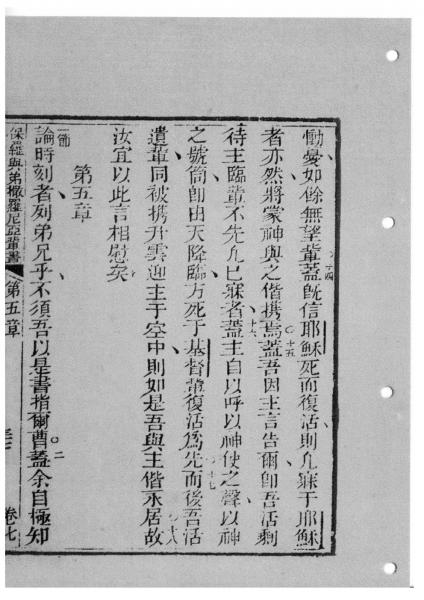 慟憂如餘無望輩蓋旣信耶穌死而復活則凡寐于耶穌
十四
者亦然將蒙神與之偕携焉蓋吾因主言告爾卽吾活剩
十五
待主臨輩不先凡已寐者蓋主自以呼以神使之聲以神
十六
之號筒卽由天降臨方死于基督輩復活爲先而後吾活
十七
遺輩同被携升雲迎主于空中則如是吾與主偕永居故
十八
汝宜以此言相慰矣
第五章
一節
論時刻者列弟兄乎不須吾以是書指爾曹蓋余自極知
二
保羅與弟撒羅尼亞輩書
第五章
卷七